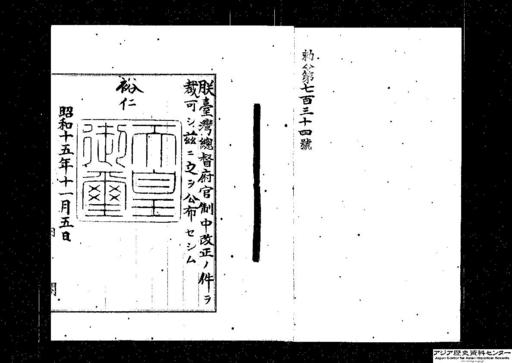 勅令第七百三十四號
朕臺灣總督府官制中改正ノ件ヲ
裁可シ茲ニ之ヲ公布セシム
裕仁
天皇
御璽
昭和十五年十一月五日
アジア歴史資料センター
Japan Center for Asian Historical Records